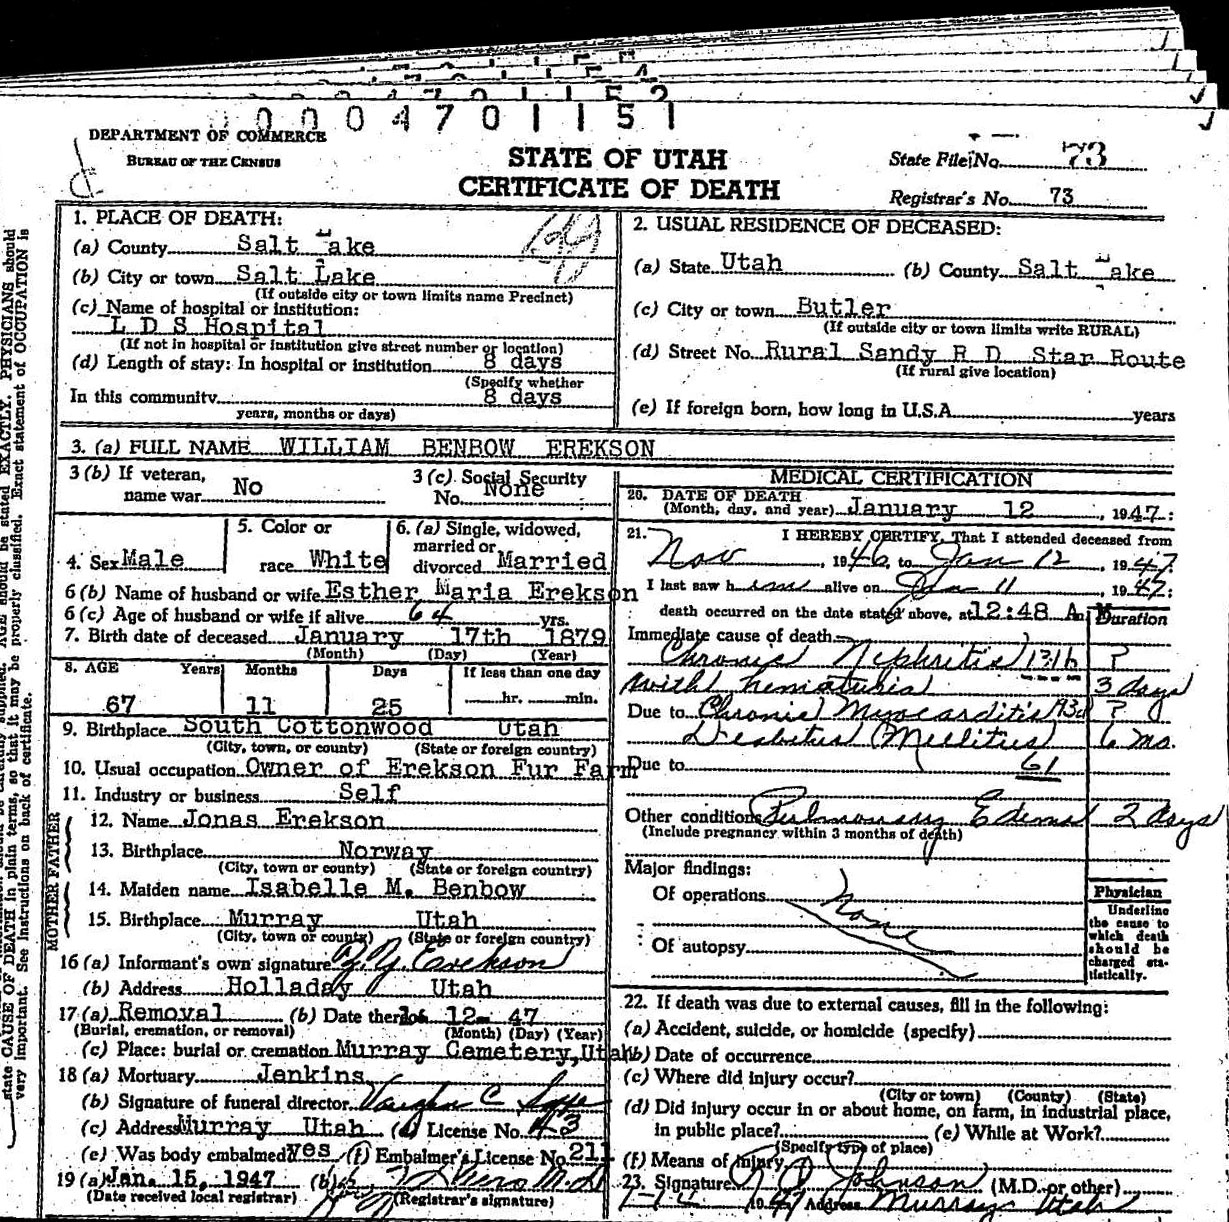 0 0 0 4 7 0 1 1 5 1
DEPARTMENT OF COMMERCE
BUREAU OF THE CENSUS
STATE OF UTAH
CERTIFICATE OF DEATH
State File No. 73
Registrar's No. 73
1. PLACE OF DEATH:
(a) County Salt Lake
(b) City or town Salt Lake
(If outside city or town limits name Precinct)
(c) Name of hospital or institution:
L D S Hospital
(If not in hospital or institution give street number or location)
(d) Length of stay: In hospital or institution 8 days
(Specify whether
In this community 8 days
years, months or days)
2. USUAL RESIDENCE OF DECEASED:
(a) State Utah (b) County Salt Lake
(c) City or town Butler
(If outside city or town limits write RURAL)
(d) Street No. Rural Sandy R D Star Route
(If rural give location)
(e) If foreign born, how long in U.S.A. years
3. (a) FULL NAME WILLIAM BENBOW EREKSON
3 (b) If veteran, name war No
3 (c) Social Security No. None
4. Sex Male
5. Color or race White
6. (a) Single, widowed, married or divorced Married
6 (b) Name of husband or wife Esther Maria Erekson
6 (c) Age of husband or wife if alive 64 yrs.
7. Birth date of deceased January 17th 1879
(Month) (Day) (Year)
8. AGE Years Months Days If less than one day
67 11 25 hr. min.
9. Birthplace South Cottonwood Utah
(City, town, or county) (State or foreign country)
10. Usual occupation Owner of Erekson Fur Farm
11. Industry or business Self
FATHER
12. Name Jonas Erekson
13. Birthplace Norway
(City, town or county) (State or foreign country)
MOTHER
14. Maiden name Isabelle M. Benbow
15. Birthplace Murray Utah
(City, town or county) (State or foreign country)
16 (a) Informant's own signature Erekson
(b) Address Holladay Utah
17 (a) Removal (b) Date thereof 12- 47
(Burial, cremation, or removal) (Month) (Day) (Year)
(c) Place: burial or cremation Murray Cemetery, Utah
18 (a) Mortuary Jenkins
(b) Signature of funeral director Vaughn C
(c) Address Murray Utah (d) License No. 43
(e) Was body embalmed? yes (f) Embalmer's License No. 211
19 (a) Jan. 15, 1947 (b)
(Date received local registrar) (Registrar's signature)
MEDICAL CERTIFICATION
20. DATE OF DEATH
(Month, day, and year) January 12, 1947:
21. I HEREBY CERTIFY, That I attended deceased from
Nov, 1946, to Jan 12, 1947.
I last saw him alive on Jan 11, 1947:
death occurred on the date stated above, at 12:48 A. M
Duration
Immediate cause of death
Chronic Nephritis 131b ?
with hematuria 3 days
Due to Chronic Myocarditis 93d ?
Diabetus Mellitus 6 mo.
Due to 61
Other conditions Pulmonary Edema 2 days
(Include pregnancy within 3 months of death)
Major findings:
Of operations None
Of autopsy
Physician
Underline
the cause to
which death
should be
charged sta-
tistically.
22. If death was due to external causes, fill in the following:
(a) Accident, suicide, or homicide (specify)
(b) Date of occurrence
(c) Where did injury occur?
(City or town) (County) (State)
(d) Did injury occur in or about home, on farm, in industrial place,
in public place? (e) While at Work?
(Specify type of place)
(f) Means of injury
23. Signature Johnson (M.D. or other)
1-14 1947 Address Murray Utah